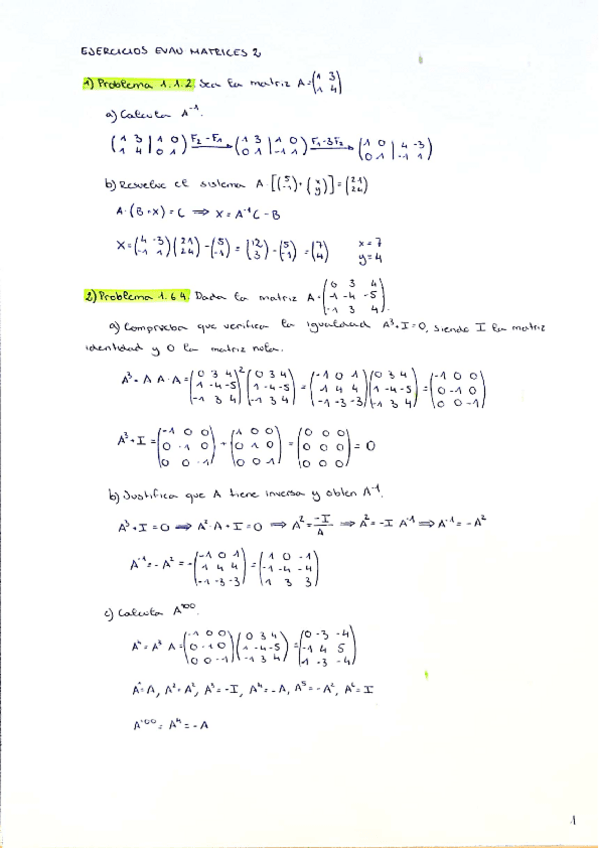 EJERCICIOS EVAU MATRICES 2
1) Problema 1.1.2. Sea la matriz A=(1 3; 1 4)
a) Calcula A⁻¹.
(1 3 | 1 0; 1 4 | 0 1) F₂-F₁→ (1 3 | 1 0; 0 1 | -1 1) F₁-3F₂→ (1 0 | 4 -3; 0 1 | -1 1)
b) Resuelve el sistema A·[(5; -1)+(x; y)]=(21; 24)
A·(B+X)=C ⇒ X=A⁻¹C-B
X=(4 -3; -1 1)(21; 24)-(5; -1)=(12; 3)-(5; -1)=(7; 4) x=7 y=4
2) Problema 1.6.4. Dada la matriz A=(0 3 4; 1 -4 -5; -1 3 4).
a) Comprueba que verifica la igualdad A³+I=0, siendo I la matriz
identidad y O la matriz nula.
A³=A·A·A=(0 3 4; 1 -4 -5; -1 3 4)²(0 3 4; 1 -4 -5; -1 3 4)=(-1 0 1; 1 4 4; -1 -3 -3)(0 3 4; 1 -4 -5; -1 3 4)=(-1 0 0; 0 -1 0; 0 0 -1)
A³+I=(-1 0 0; 0 -1 0; 0 0 -1)+(1 0 0; 0 1 0; 0 0 1)=(0 0 0; 0 0 0; 0 0 0)=0
b) Justifica que A tiene inversa y obten A⁻¹.
A³+I=0 ⇒ A²·A+I=0 ⇒ A²=-I/A ⇒ A²=-I A⁻¹ ⇒ A⁻¹=-A²
A⁻¹=-A²=-(-1 0 1; 1 4 4; -1 -3 -3)=(1 0 -1; -1 -4 -4; 1 3 3)
c) Calcula A¹⁰⁰.
A⁴=A³·A=(-1 0 0; 0 -1 0; 0 0 -1)(0 3 4; 1 -4 -5; -1 3 4)=(0 -3 -4; -1 4 5; 1 -3 -4)
A¹=A, A²=A², A³=-I, A⁴=-A, A⁵=-A², A⁶=I
A¹⁰⁰=A⁴=-A
1